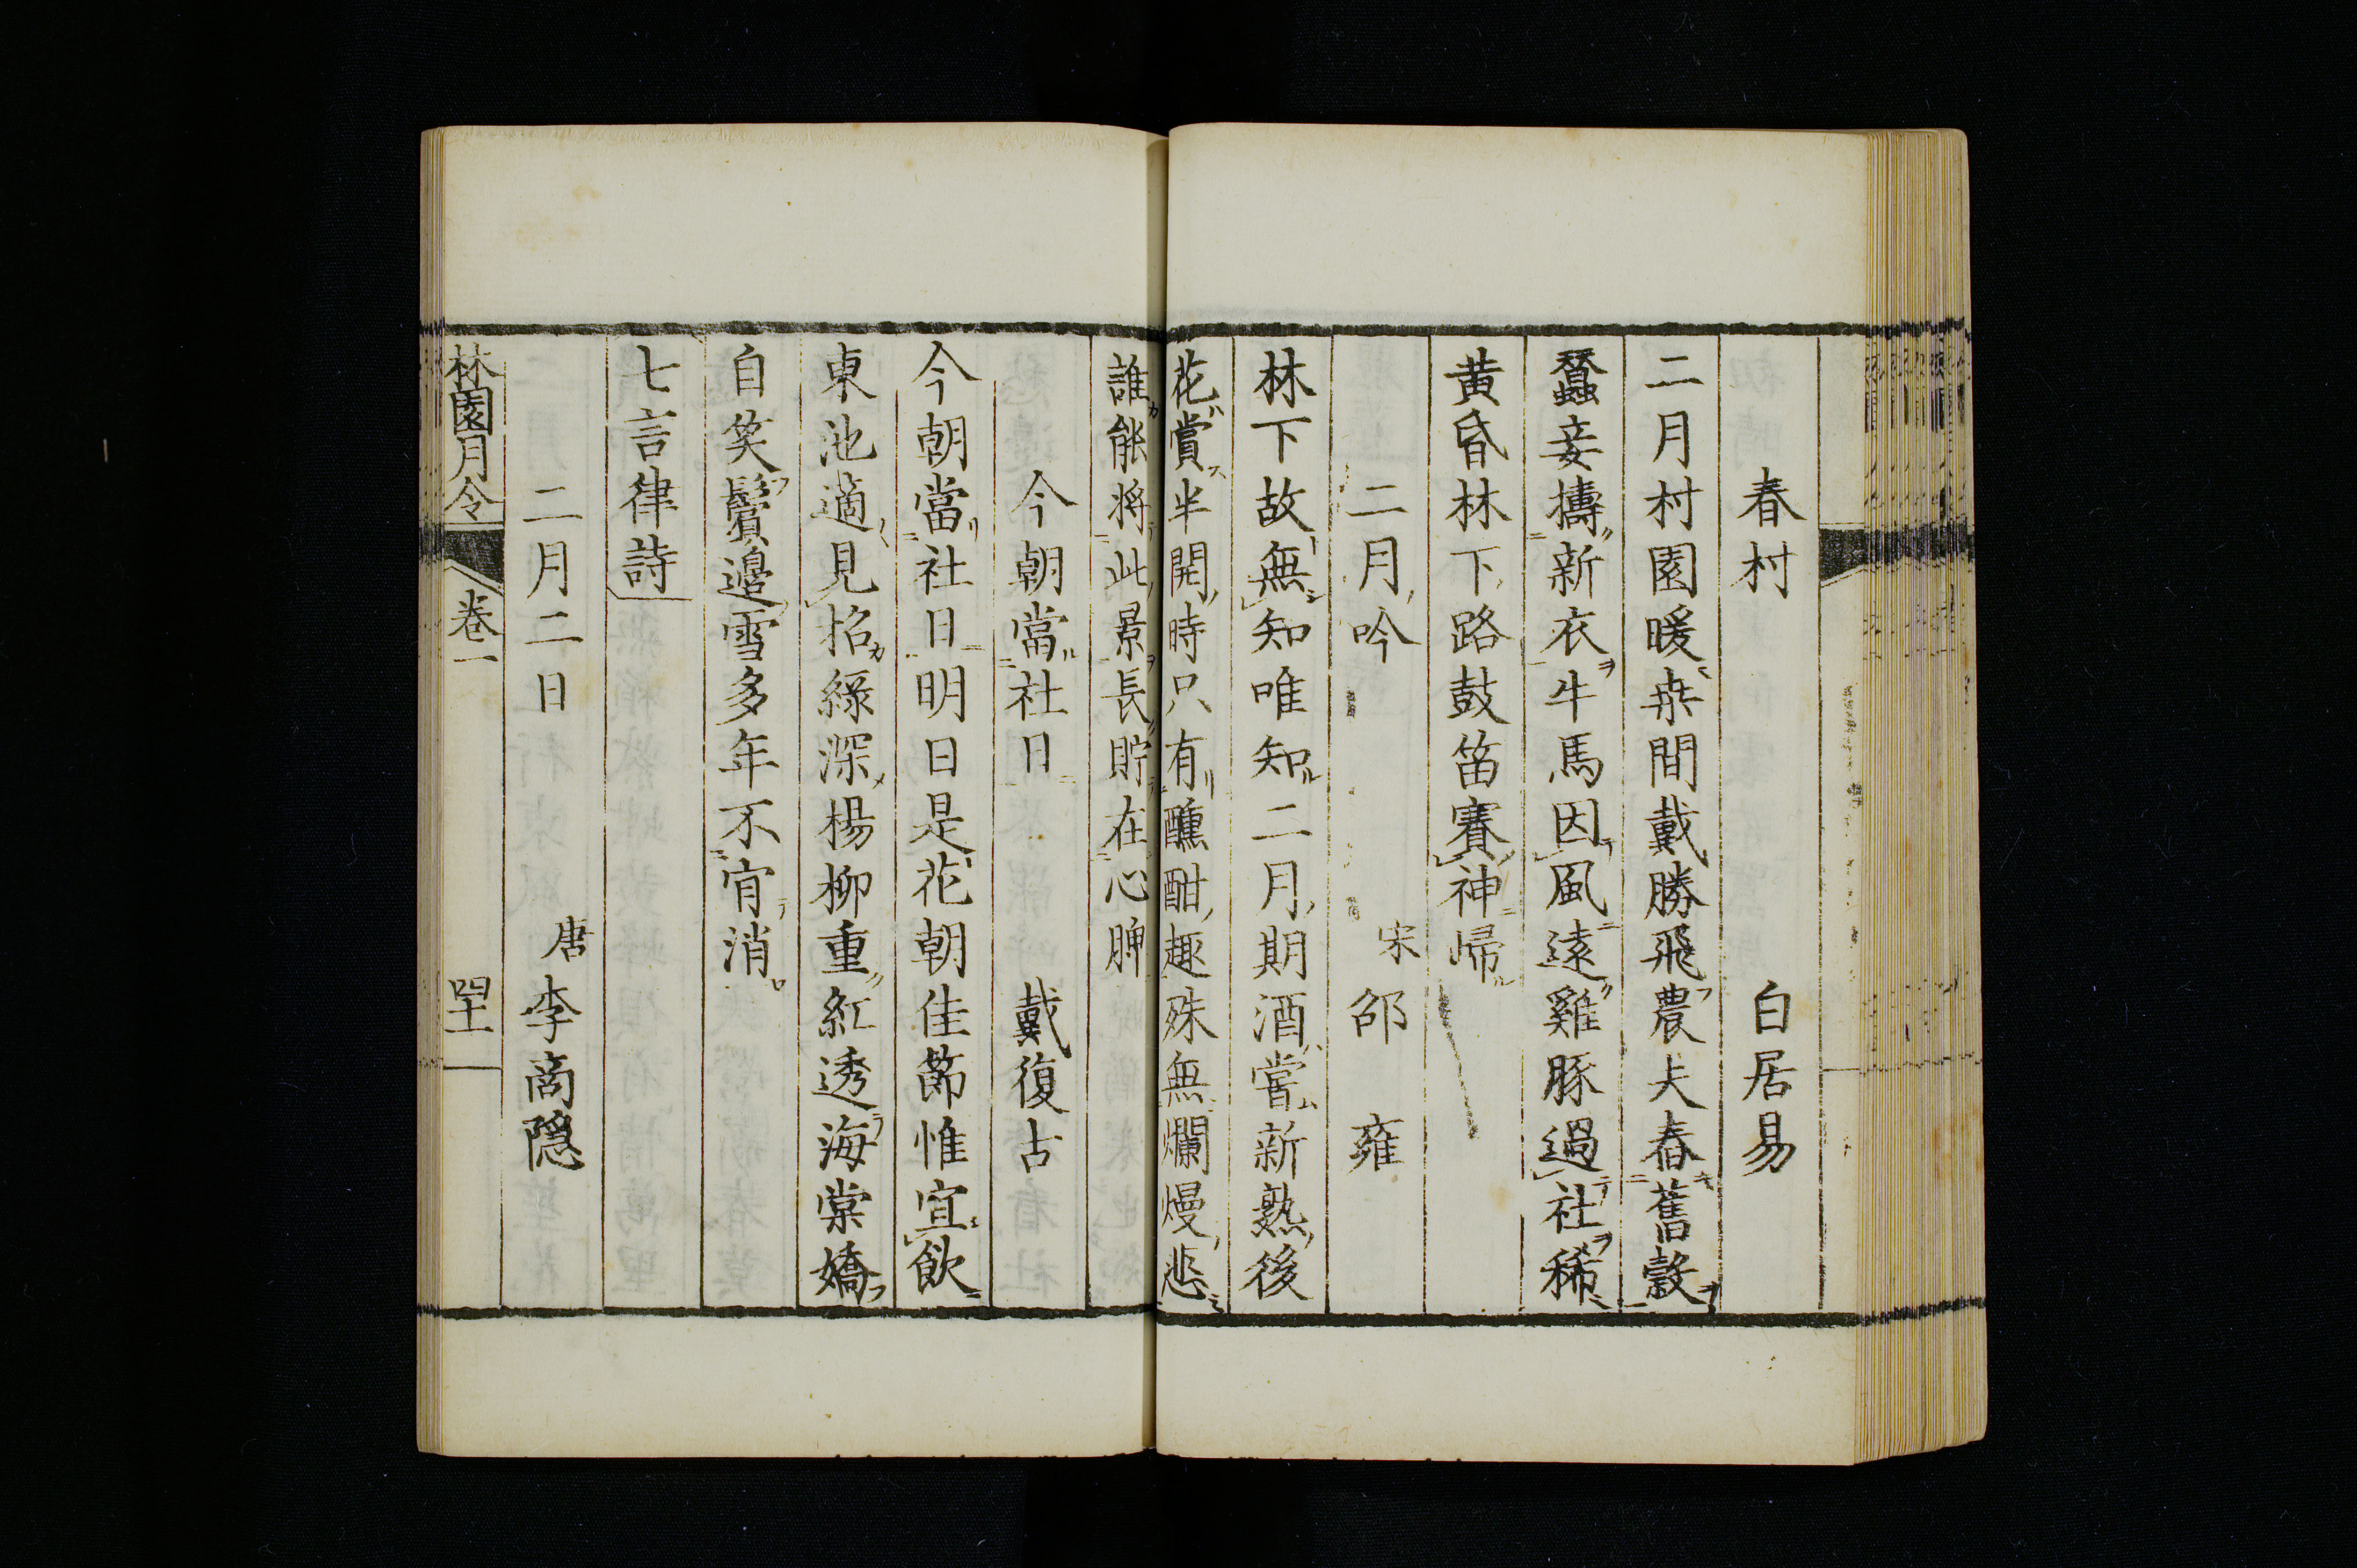 春村　白居易
二月村園暖桒間戴勝飛農夫舂舊穀
蠶妾擣新衣牛馬因風遠雞豚過社稀
黄昏林下路鼓笛賽神歸
二月吟　宋邵雍
林下故無知唯知二月期酒嘗新熟後
花賞半開時只有醺酣趣殊無爛熳悲
誰能将此景長貯在心脾
今朝當社日　戴復古
今朝當社日明日是花朝佳莭惟宜飲
東池適見招緑深楊柳重紅透海棠嬌
自笑鬢邉雪多年不肯消
七言律詩
二月二日　唐李商隠
林園月令　卷一